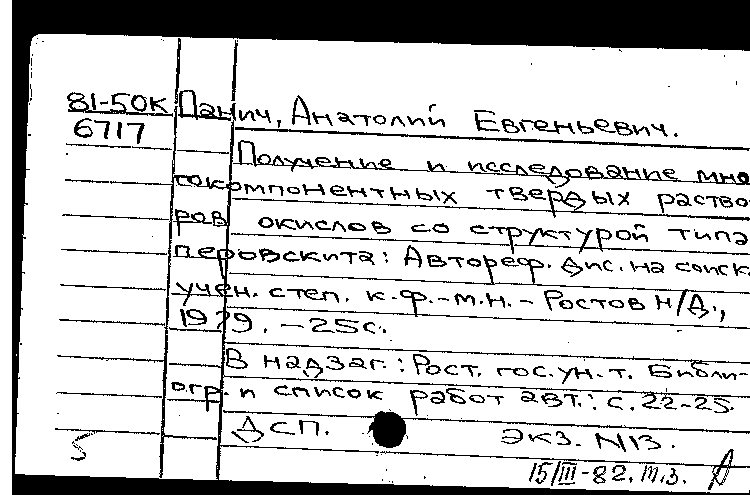 81-50К Панич, Анатолий Евгеньевич.
6717
Получение и исследование мно
гокомпонентных твердых раство
ров окислов со структурой типа
перовскита: Автореф. дис. на соиск.
учен. степ. к.ф.-м.н. - Ростов н/Д.,
1979. - 25с.
В надзаг.: Рост. гос. ун-т. Библи-
огр. и список работ авт.: с. 22-25.
ДСП. Экз. N13.
5
15/III-82. т.з.